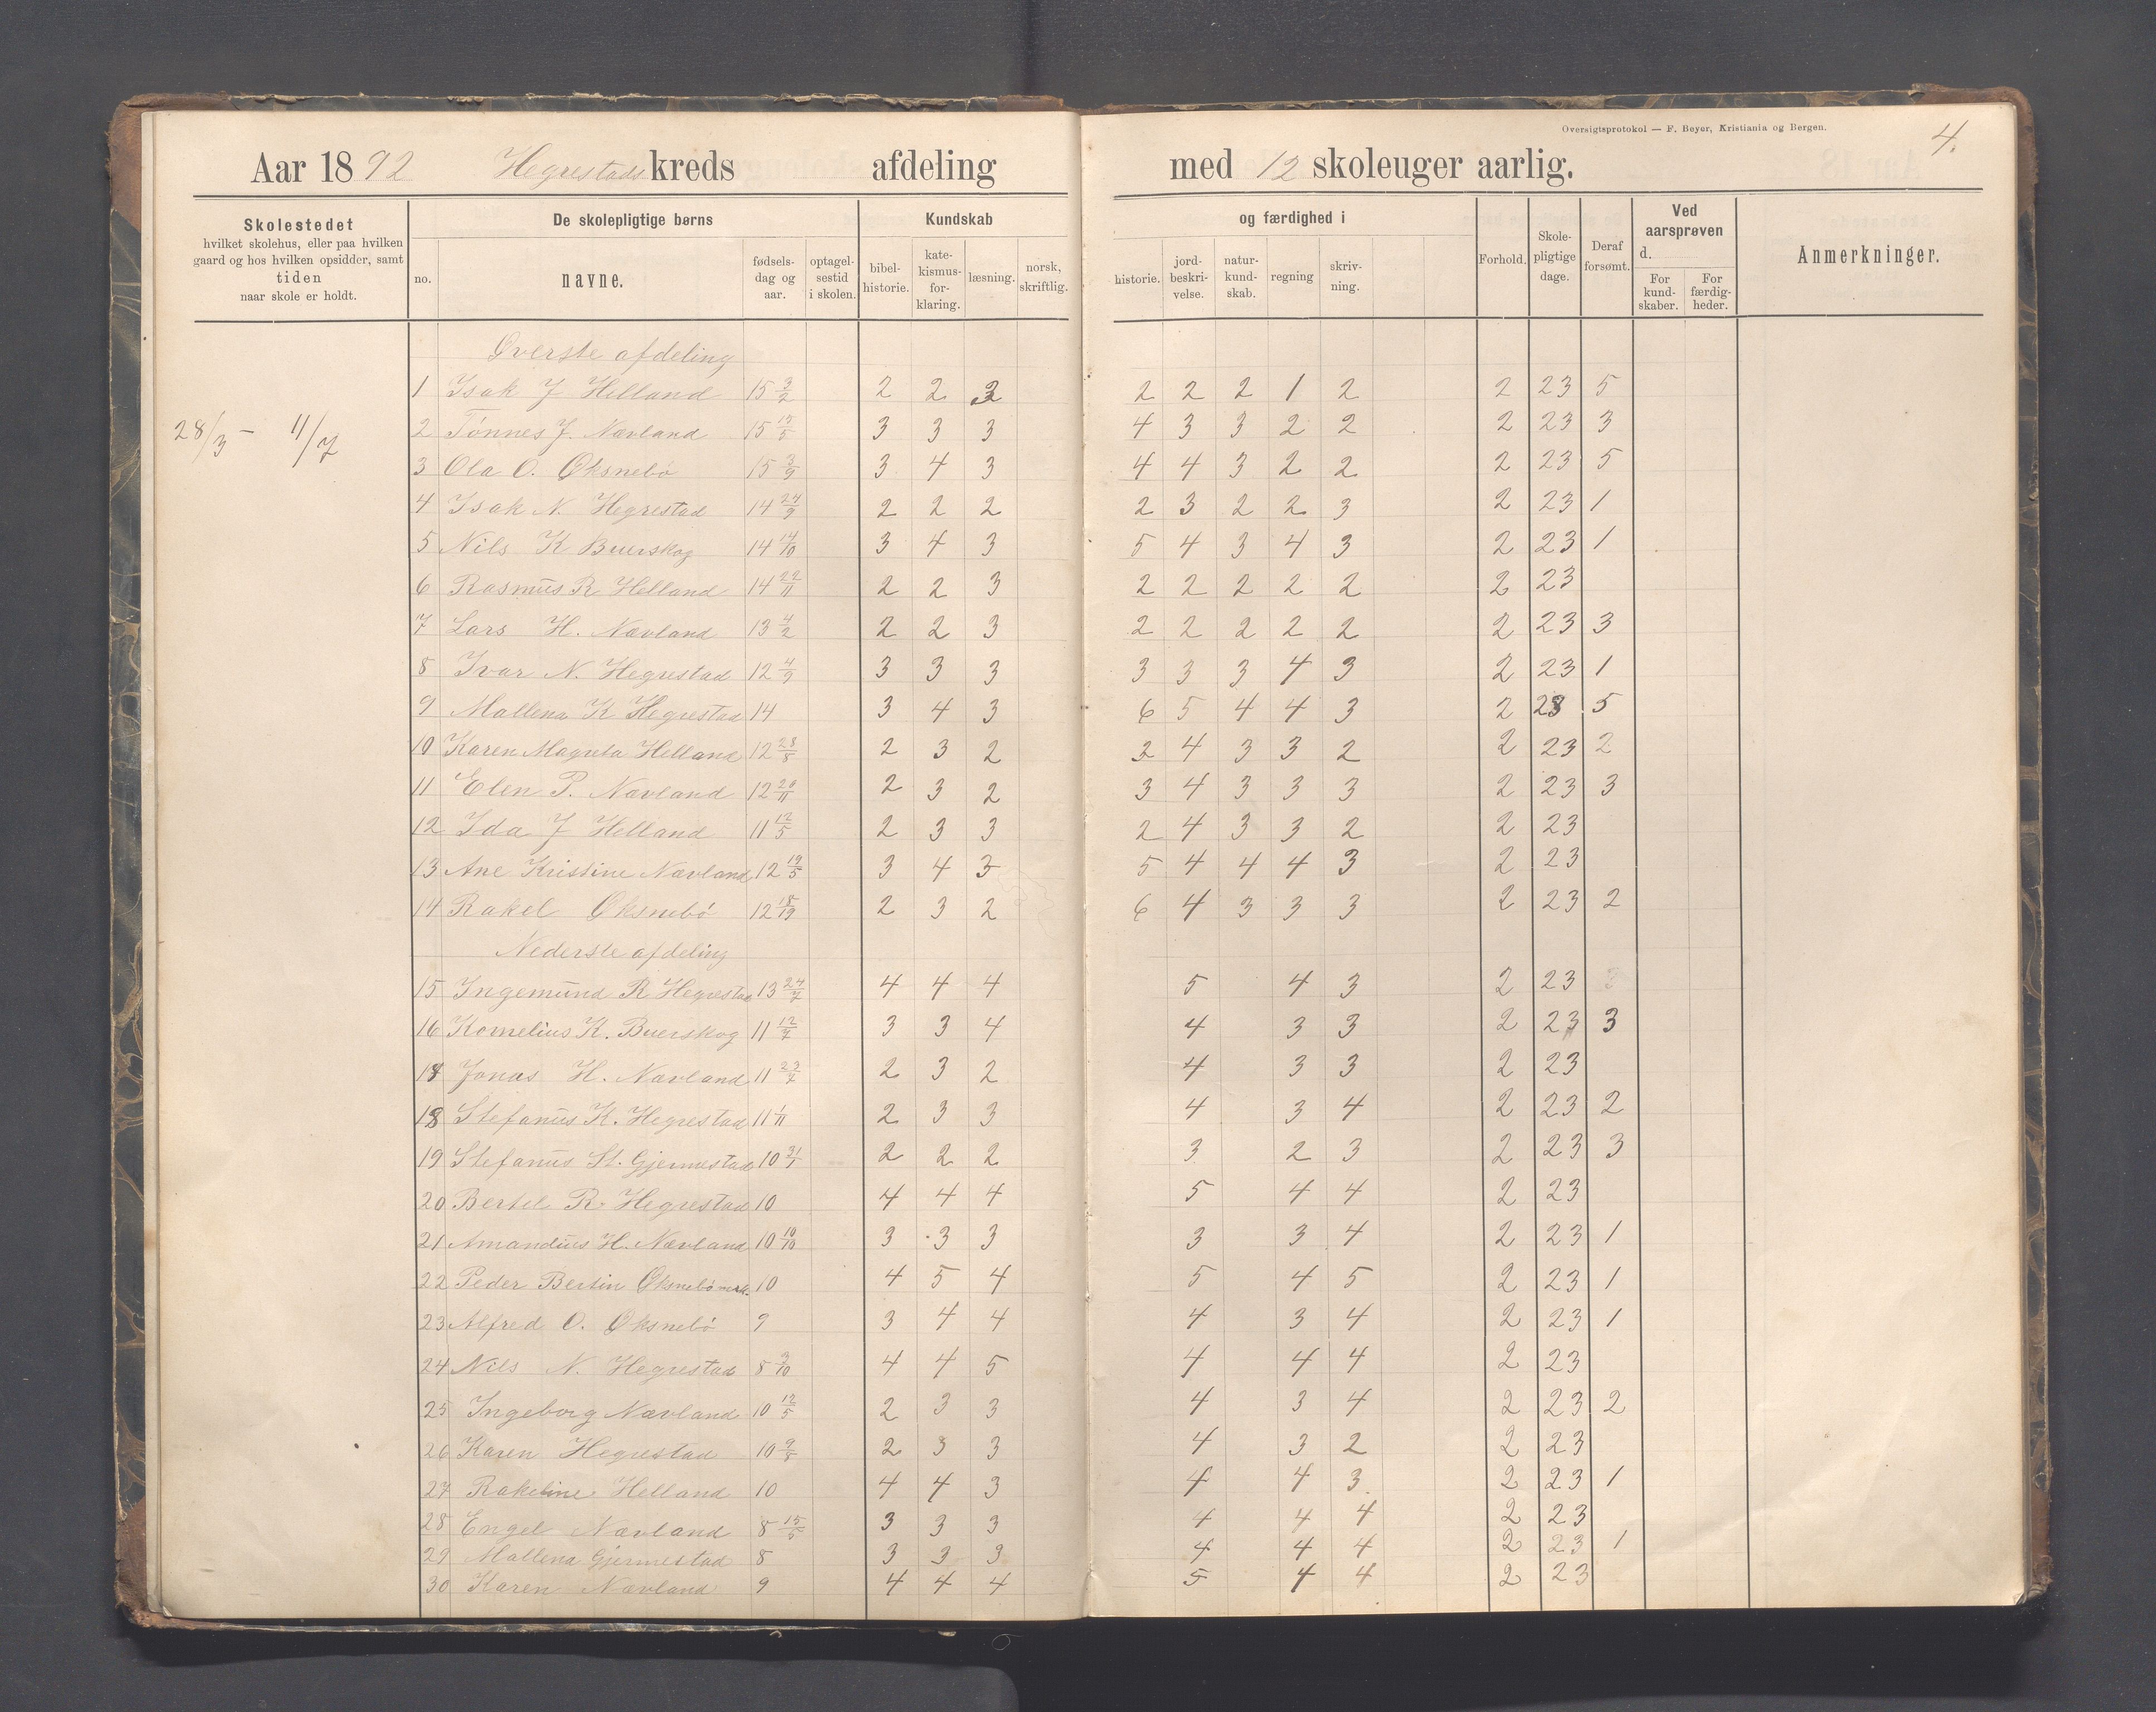 Oversigtsprotokol — F. Beyer, Kristiania og Bergen.
4.
Aar 1892 Hegrestads kreds afdeling med 12 skoleuger aarlig.
Skolestedet hvilket skolehus, eller paa hvilken gaard og hos hvilken opsidder, samt tiden naar skole er holdt.
De skolepligtige børns
no. navne. fødselsdag og aar. optagelsestid i skolen.
Kundskab og færdighed i
bibelhistorie. katekismusforklaring. læsning. norsk, skriftlig. historie. jordbeskrivelse. naturkundskab. regning skrivning.
Forhold. Skolepligtige dage. Deraf forsømt.
Ved aarsprøven d. For kundskaber. For færdigheder.
Anmerkninger.
28/3 – 11/7
Øverste afdeling
1 Isak J Helland 15 3/2 2 2 3 2 2 2 1 2 2 23 5
2 Tønnes J. Nævland 15 15/5 3 3 3 4 3 3 2 2 2 23 3
3 Ola O. Øksnebø 15 3/9 3 4 3 4 4 3 2 2 2 23 5
4 Isak N. Hegrestad 14 24/9 2 2 2 2 3 2 2 3 2 23 1
5 Nils K Buerskog 14 14/10 3 4 3 5 4 3 4 3 2 23 1
6 Rasmus R Helland 14 22/11 2 2 3 2 2 2 2 2 2 23
7 Lars H. Nævland 13 4/2 2 2 3 2 2 2 2 2 2 23 3
8 Ivar N. Hegrestad 12 4/9 3 3 3 3 3 3 4 3 2 23 1
9 Mallena K Hegrestad 14 3 4 3 6 5 4 4 3 2 23 5
10 Karen Magreta Helland 12 28/8 2 3 2 3 4 3 3 2 2 23 2
11 Elen P. Nævland 12 20/11 2 3 2 3 4 3 3 3 2 23 3
12 Ida J Helland 11 12/5 2 3 3 2 4 3 3 2 2 23
13 Ane Kristine Nævland 12 19/5 3 4 3 5 4 4 4 3 2 23
14 Rakel Øksnebø 12 18/19 2 3 2 6 4 3 3 3 2 23 2
Nederste afdeling
15 Ingemund R Hegrestad 13 24/7 4 4 4 5 4 3 2 23
16 Kornelius K. Buerskog 11 12/7 3 3 4 4 3 3 2 23 3
17 Jonas H. Nævland 11 23/7 2 3 2 4 3 3 2 23
18 Stefanus K. Hegrestad 11 1/11 2 3 3 4 3 4 2 23 2
19 Stefanus St. Gjermestad 10 31/1 2 2 2 3 2 3 2 23 3
20 Bertel R. Hegrestad 10 4 4 4 5 4 4 2 23
21 Amandius H. Nævland 10 10/10 3 3 3 3 3 4 2 23 1
22 Peder Bertin Øksnebømrk. 10 4 5 4 5 4 5 2 23 1
23 Alfred O. Øksnebø 9 3 4 4 4 3 4 2 23 1
24 Nils N. Hegrestad 8 3/10 4 4 5 4 4 4 2 23
25 Ingeborg Nævland 10 12/5 2 3 3 4 3 4 2 23 2
26 Karen Hegrestad 10 9/8 2 3 3 4 3 2 2 23
27 Rakeline Helland 10 4 4 3 4 4 3. 2 23 1
28 Engel Nævland 8 15/5 3 3 3 4 4 4 2 23
29 Mallena Gjermestad 8 3 3 3 4 4 4 2 23 1
30 Karen Nævland 9 4 4 4 5 4 4 2 23